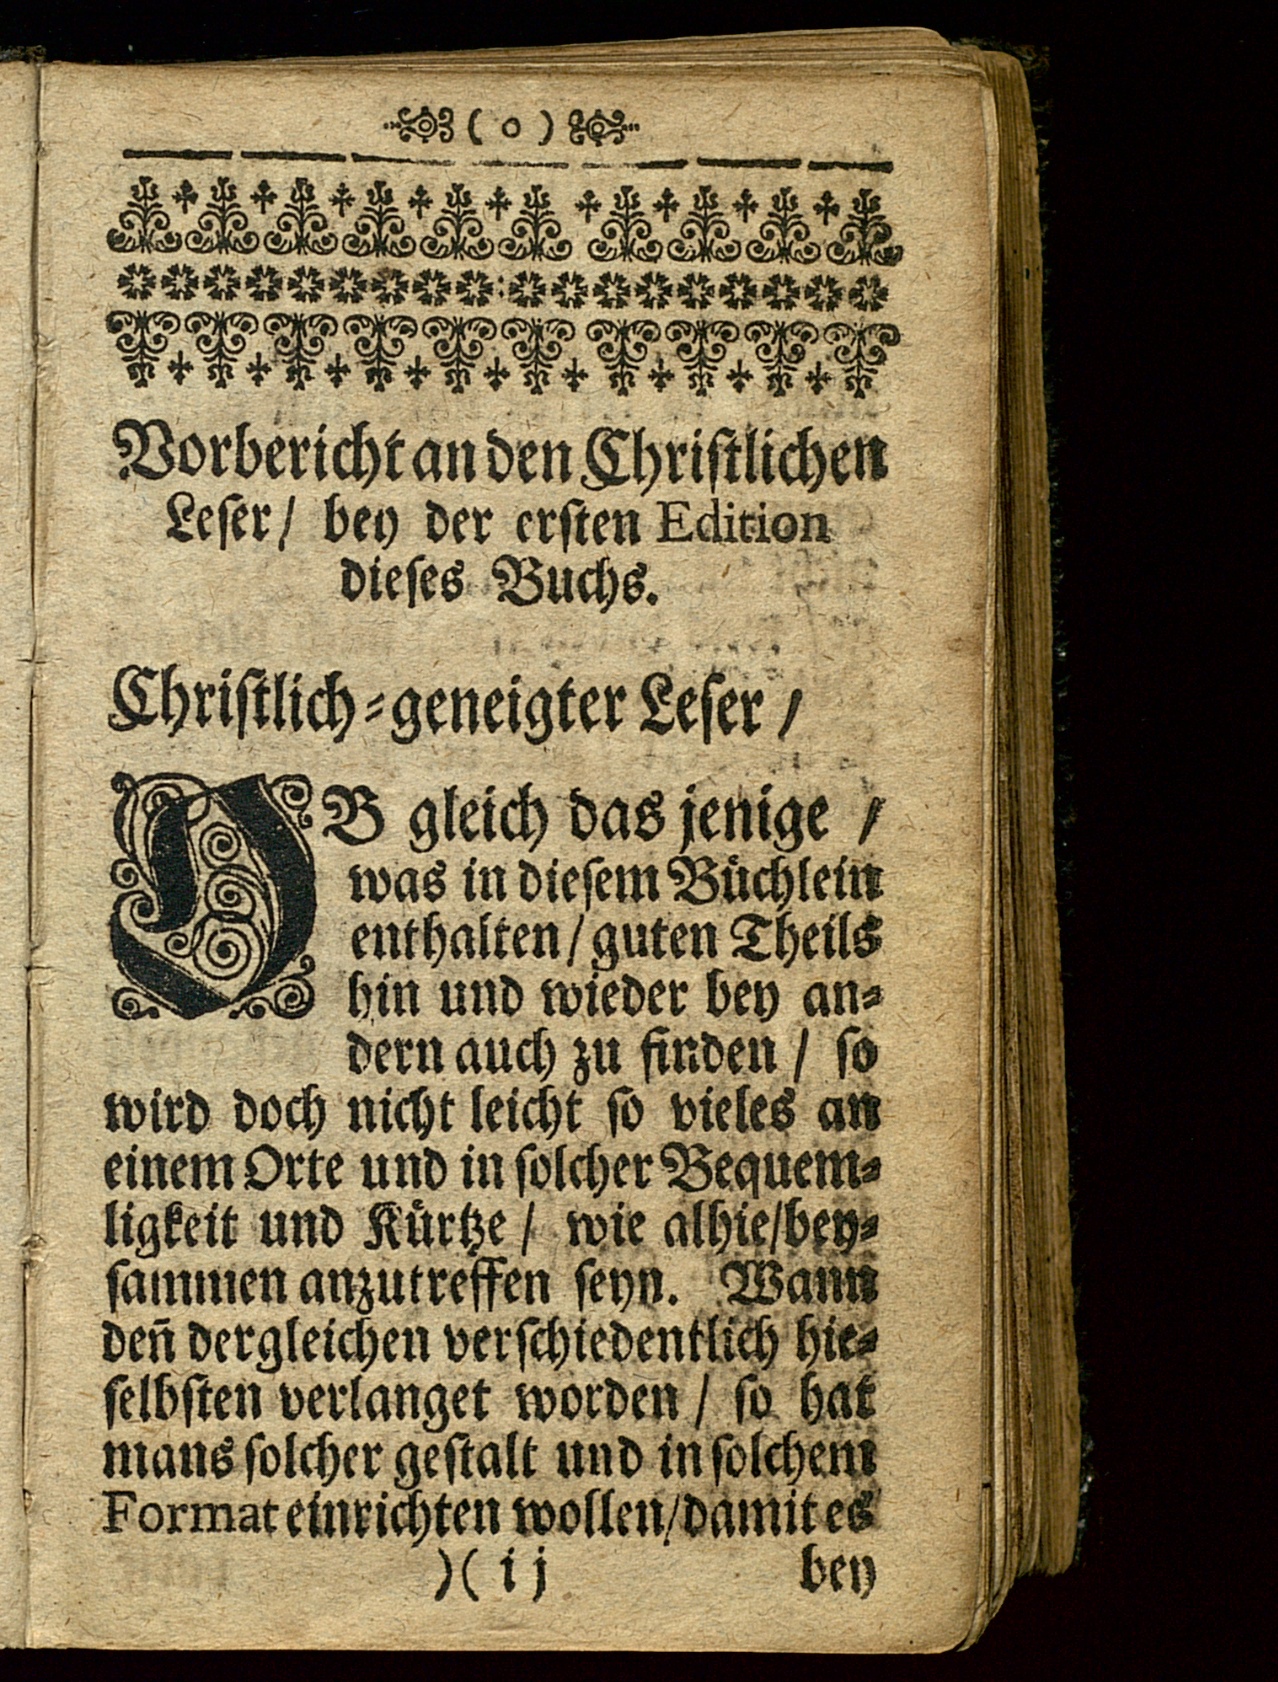 ( o )
Vorbericht an den Chriſtlichen
Leſer / bey der erſten Edition
dieſes Buchs.
Chriſtlich-geneigter Leſer /
OB gleich das jenige /
was in dieſem Buͤchlein
enthalten / guten Theils
hin und wieder bey an-
dern auch zu finden / ſo
wird doch nicht leicht ſo vieles an
einem Orte und in ſolcher Bequem-
ligkeit und Kuͤrtze / wie alhie/bey-
ſammen anzutreffen ſeyn. Wann
deñ dergleichen verſchiedentlich hie-
ſelbſten verlanget worden / ſo hat
mans ſolcher geſtalt und in ſolchem
Format einrichten wollen/damit es
)( ij bey